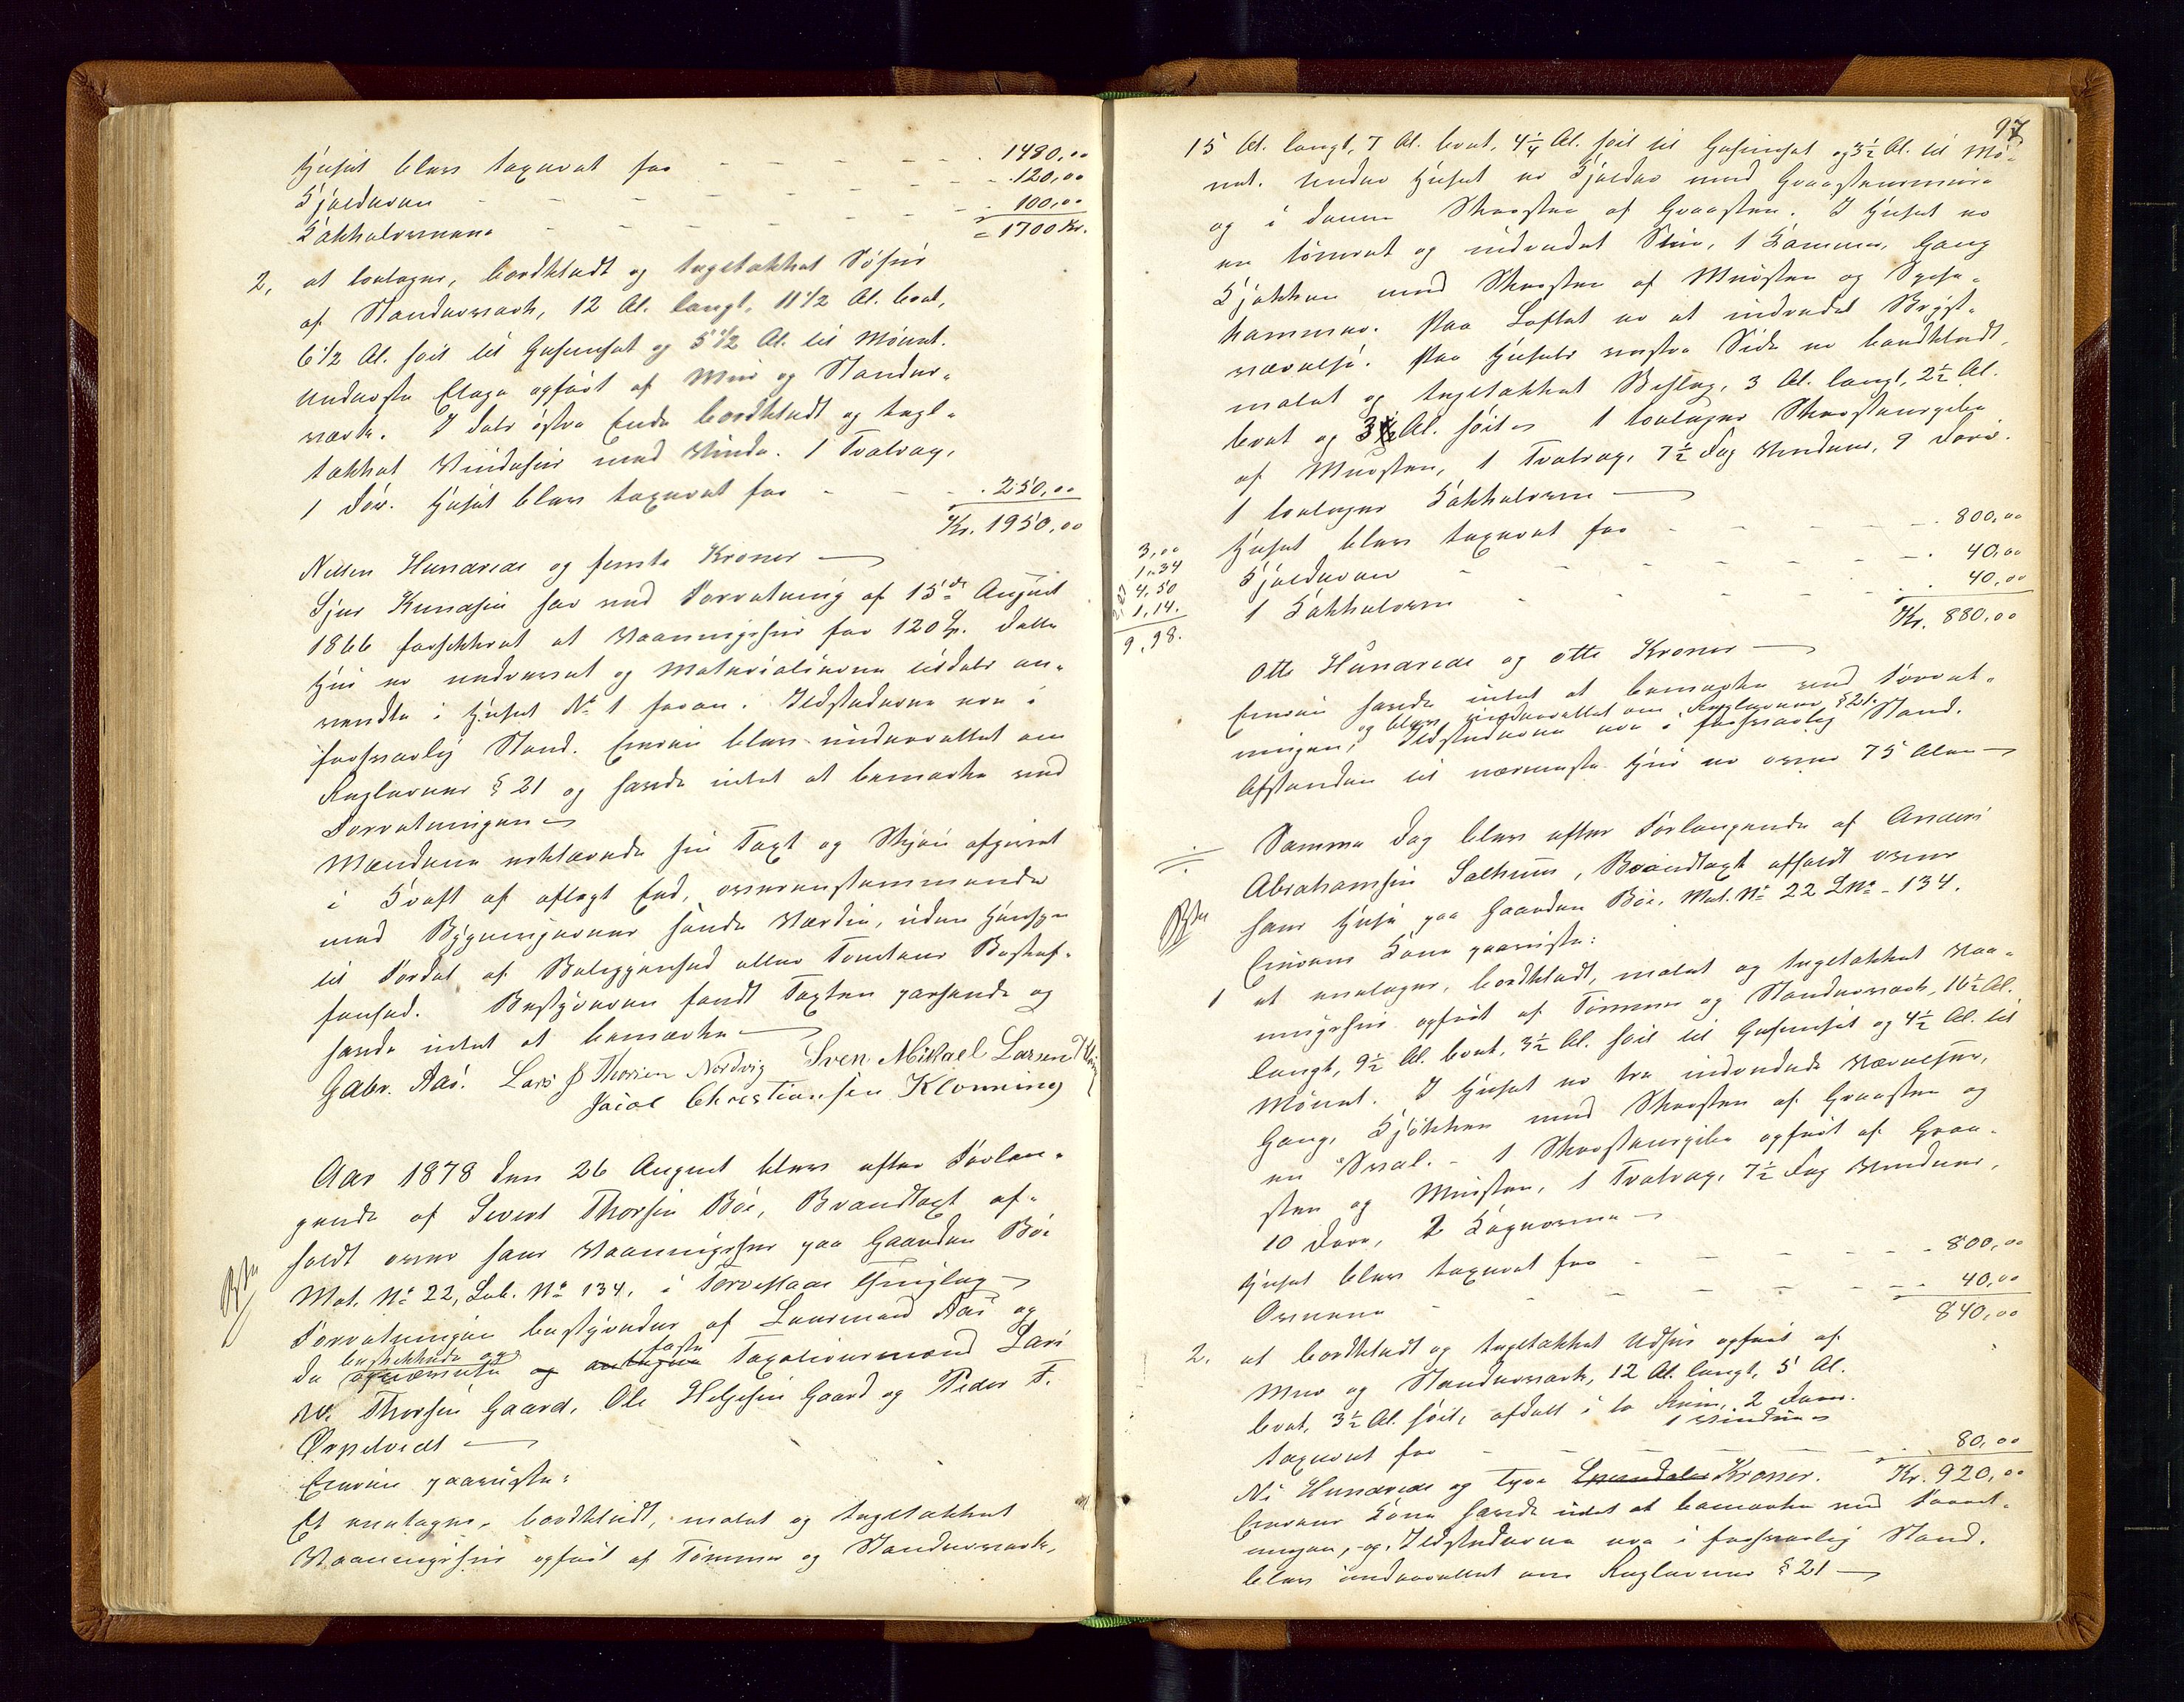 Huset blev taxeret for - - - - 1480,00
Kjelderen - - - - 120,00
2 Kakkelovnene - - - - 100,00
= 1700 Kr.
2, et toetages, bordklædt og tegltækket Søhuus
af Stenderværk, 12 Al. langt, 11 1/2 Al. bredt,
6 1/2 Al. høit til Gesimset og 5 1/2 Al. til Mønnet.
Underste Etage opført af Muur og Stender-
værk. I dets østre Ende bordklædt og tegl-
tækket Vindehuus med Vinde. 1 Trætrap,
1 Dør. Huset blev taxeret for - - - 250,00
Kr. 1950,00
Nitten Hundrede og femti Kroner
Sjur Knudsen har ved Forretning af 15de August
1866 forsikkret et Vaaningshuus for 120 Sp. dette
Huus er nedrevet og Materialierne tildels an-
vendte i Huset No 1 foran. Ildstederne ere i
forsvarlig Stand. Eieren blev underrettet om
Reglernes § 21 og havde intet at bemærke ved
Forretningen
Mændene erklærede sin Taxt og Skjøn afgivet
i Kraft af aflagt Eed, overensstemmende
med Bygningernes sande Værdie, uden Hensyn
til Fordel af Beliggenhed eller Tomtens Beskaf-
fenhed. Bestyreren fandt Taxten passende og
havde intet at bemærke
Gabr. Aas. Lars J Thorsen Nordvig Sven Mikael Larsen
Jacob Christiansen Klovning
Aar 1878 den 26 August blev efter Forlan-
gende af Sivert Thorsen Bøe, Brandtaxt af-
holdt over hans Vaaningshuus paa Gaarden Bøe
Mat. No 22, Løb. No 134, i Torvestad Thinglag
Forretningen bestyredes af Lensmand Aas og
beskikkede og faste
de opnævnte og antagne Taxationsmænd Lars
W. Thorsen Gaard, Ole Helgesen Gaard og Peder T.
Eieren paaviste:
Et eentages, bordklædt, malet og tegltækket
Vaaningshuus opført af Tømmer og Stenderværk,
97
15 Al. langt, 7 Al. bredt, 4 1/4 Al. høit til Gesimset og 3 1/2 Al. til Mø-
net. Under Huset er Kjelder med Graasteensmure
og i denne Skorsten af Graasten. I Huset er
en tømret og indredet Stue, 1 Kammer, Gang
Kjøkken med Skorsten af Muursten og Spise-
kammer. Paa Loftet er et indredet Bryst-
værelse. Paa Husets vestre Side er bordklædt,
malet og tegltækket Beslag, 3 Al. langt, 2 1/2 Al.
bredt og 3 Al. høit. 1 toetages Skorstenspibe
af Muursten, 1 Trætrap, 7 1/2 Fag Vinduer, 9 Døre.
1 toetages Kakkelovn
Huset blev taxeret for - - - - 800,00
Kjelderen - - - - 40,00
1 Kakkelovn - - - - 40,00
Kr. 880,00
3,00
1,34
4,50
1,14.
9,98.
Otte Hundrede og otti Kroner
Eieren havde intet at bemærke ved Forret-
og blev underrettet om Reglernes § 21.
ningen, Ildstederne ere i forsvarlig Stand.
Afstanden til nærmeste Huus er over 75 Alen
Samme Dag blev efter Forlangende af Anders
Abrahamsen Salhuus, Brandtaxt afholdt over
hans Huse paa Gaarden Bøe, Mat. No 22 LNo 134.
Eierens Kone paaviste:
1 et eentages, bordklædt, malet og tegltækket Vaa-
ningshuus opført af Tømmer og Stenderværk, 16 1/2 Al.
langt, 9 1/2 Al. bredt, 3 1/2 Al. høit til Gesimset og 4 1/2 Al. til
Mønnet. I Huset er tre indredede Værelser,
Gang, Kjøkken med Skorsten af Graasten og
en Sval. - 1 Skorstenspibe opført af Graa-
sten og Muursten, 1 Trætrap, 7 1/2 Fag Vinduer,
10 Døre, 2 Kogeovne
Huset blev taxeret for - - - - 800,00
Ovnene - - - - 40,00
840,00
2. et bordklædt og tegltækket Udhuus opført af
Muur og Stenderværk, 12 Al. langt, 5 Al.
bredt, 3 1/2 Al. høit, afdelt i to Rum, 2 Døre.
1 Vindue
taxeret for - - - - 80,00
Ni Hundrede og tyve Speciedaler Kroner. Kr. 920,00
Eierens Kone havde intet at bemærke ved Forret-
ningen, og Ildstederne ere i forsvarlig Stand.
blev underrettet om Reglernes § 21